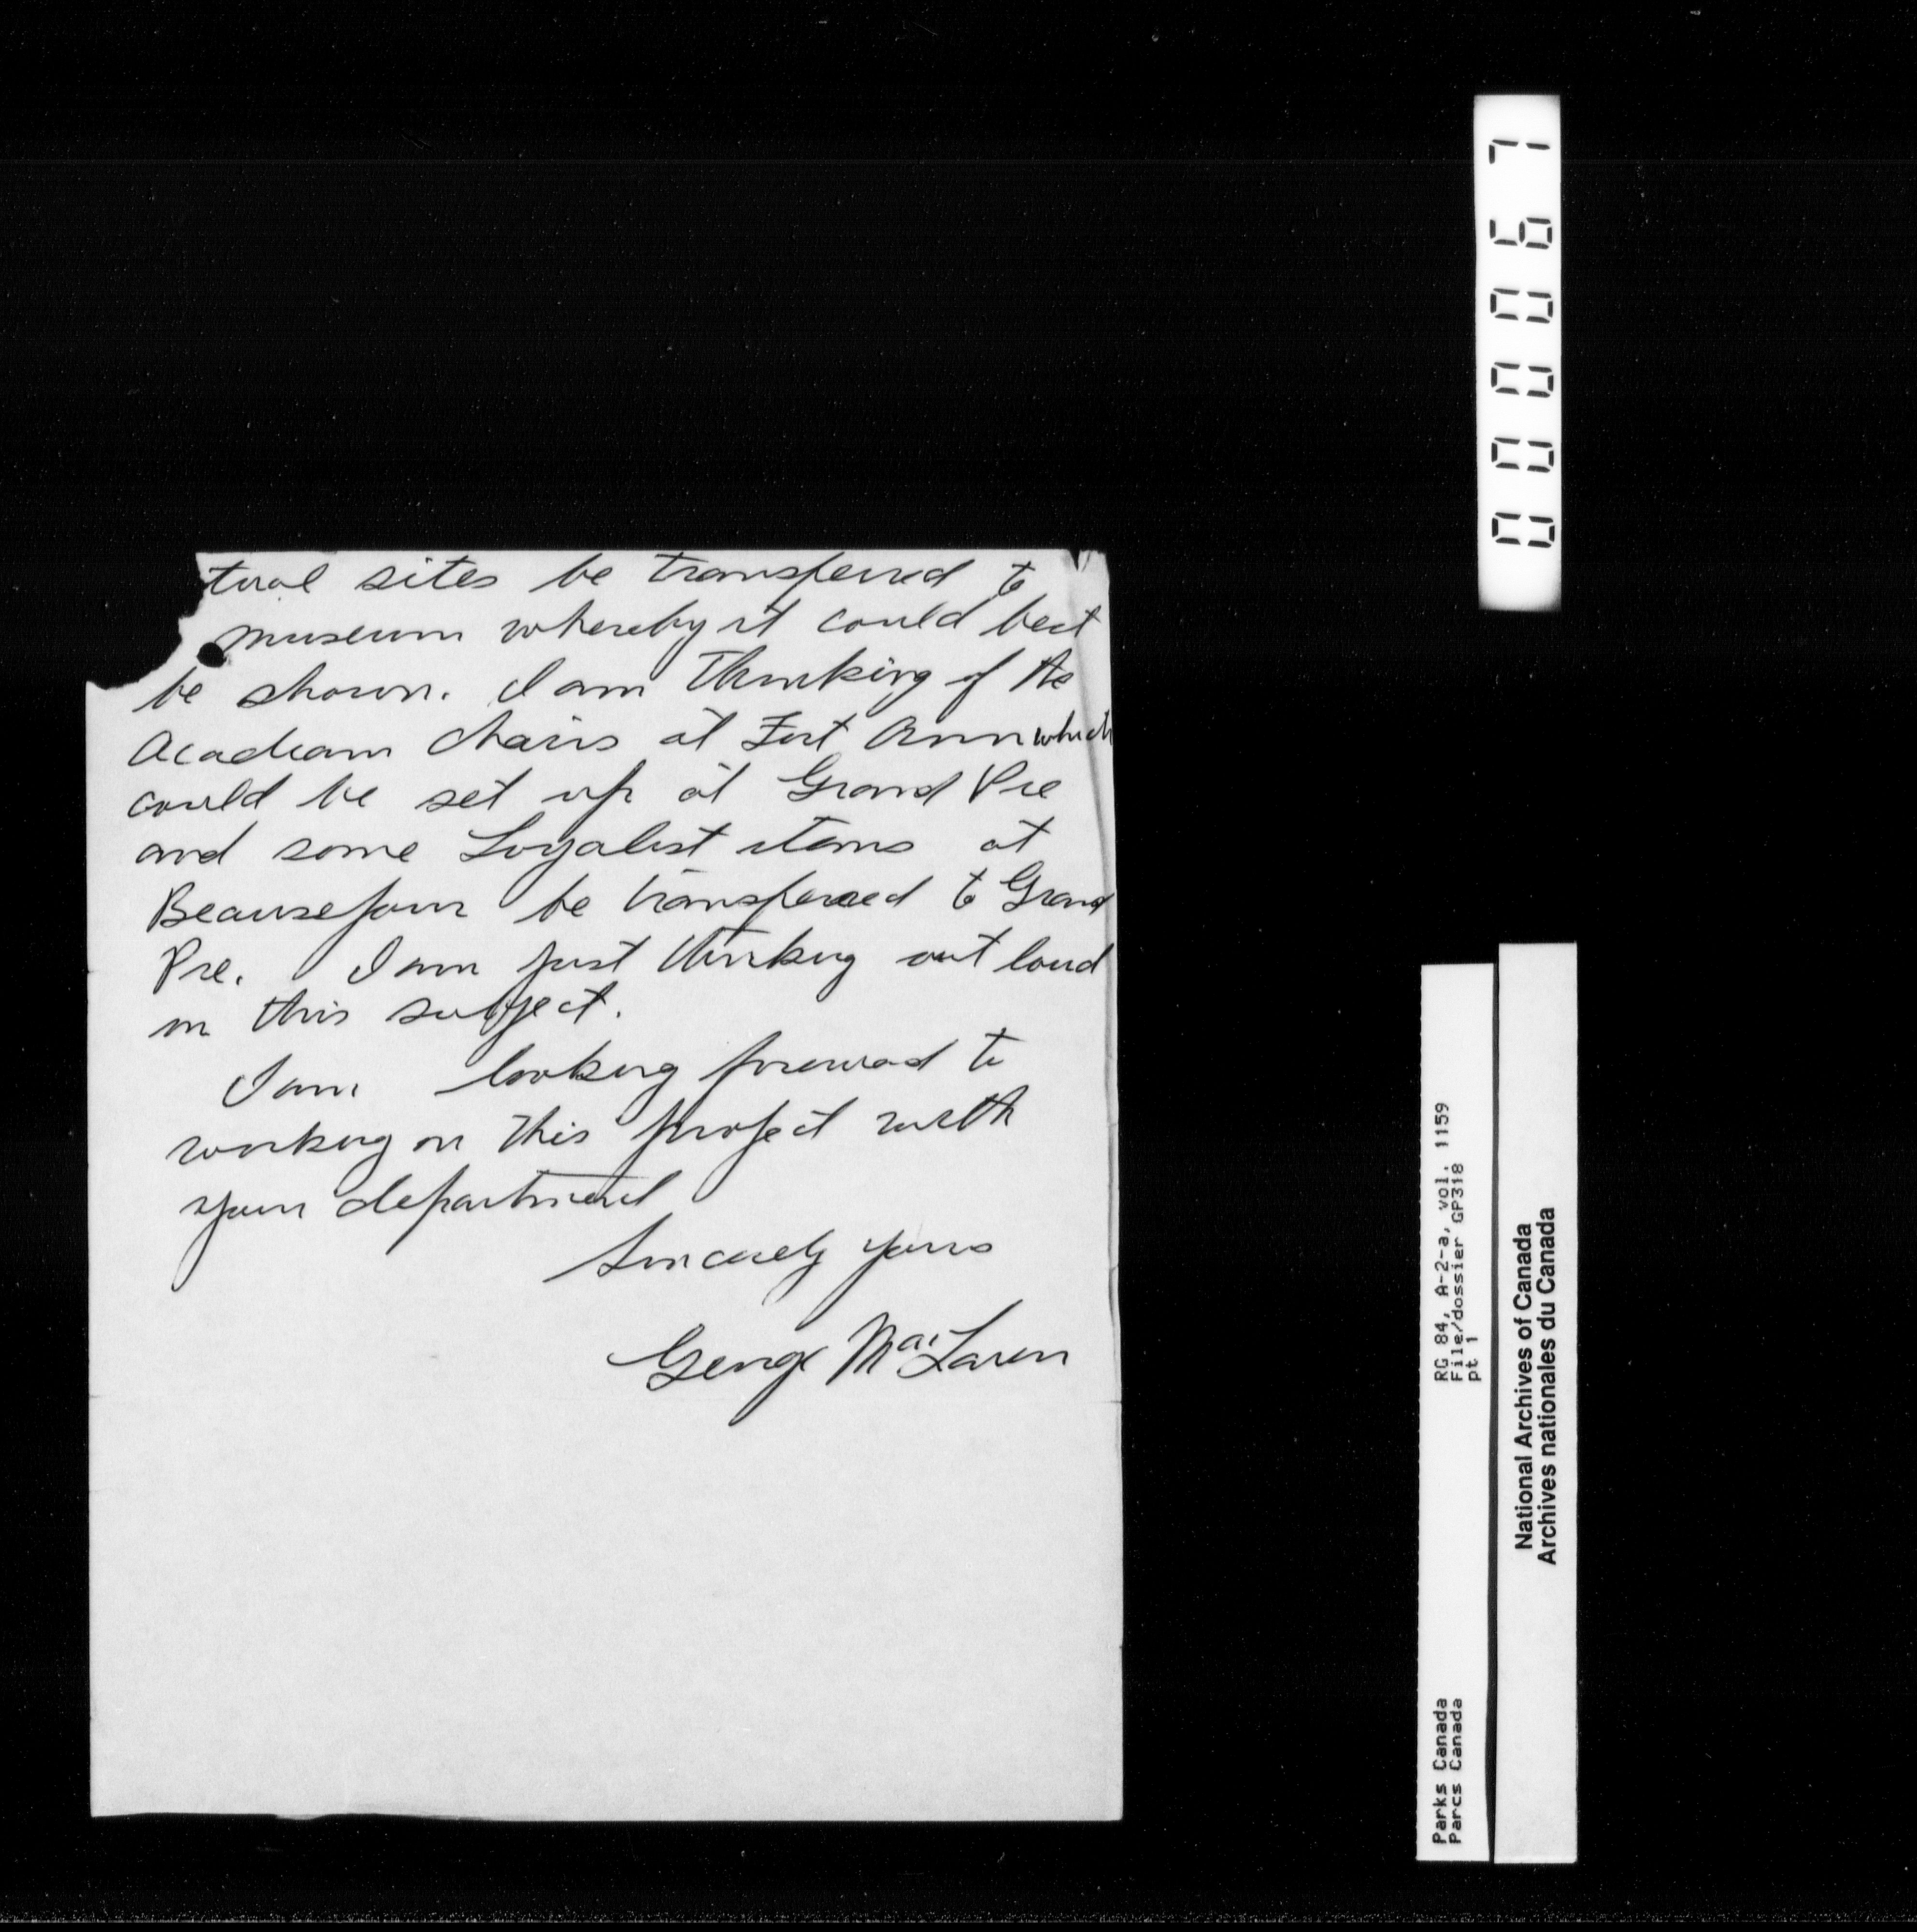 tural sites be transferred to
museum whereby it could best
be shown. I am thinking of the
Acadian chairs at Fort Ann which
could be set up at Grand Pre
and some Loyalist items at
Beausejour be transferred to Grand
Pre. I am just thinking out loud
on this subject.
I am looking foreward to
working on this project with
your department
Sincerely yours
George MacLaren
000067
RG 84, A-2-a, vol. 1159
File/dossier GP318
pt 1
Parks Canada
Parcs Canada
National Archives of Canada
Archives nationales du Canada